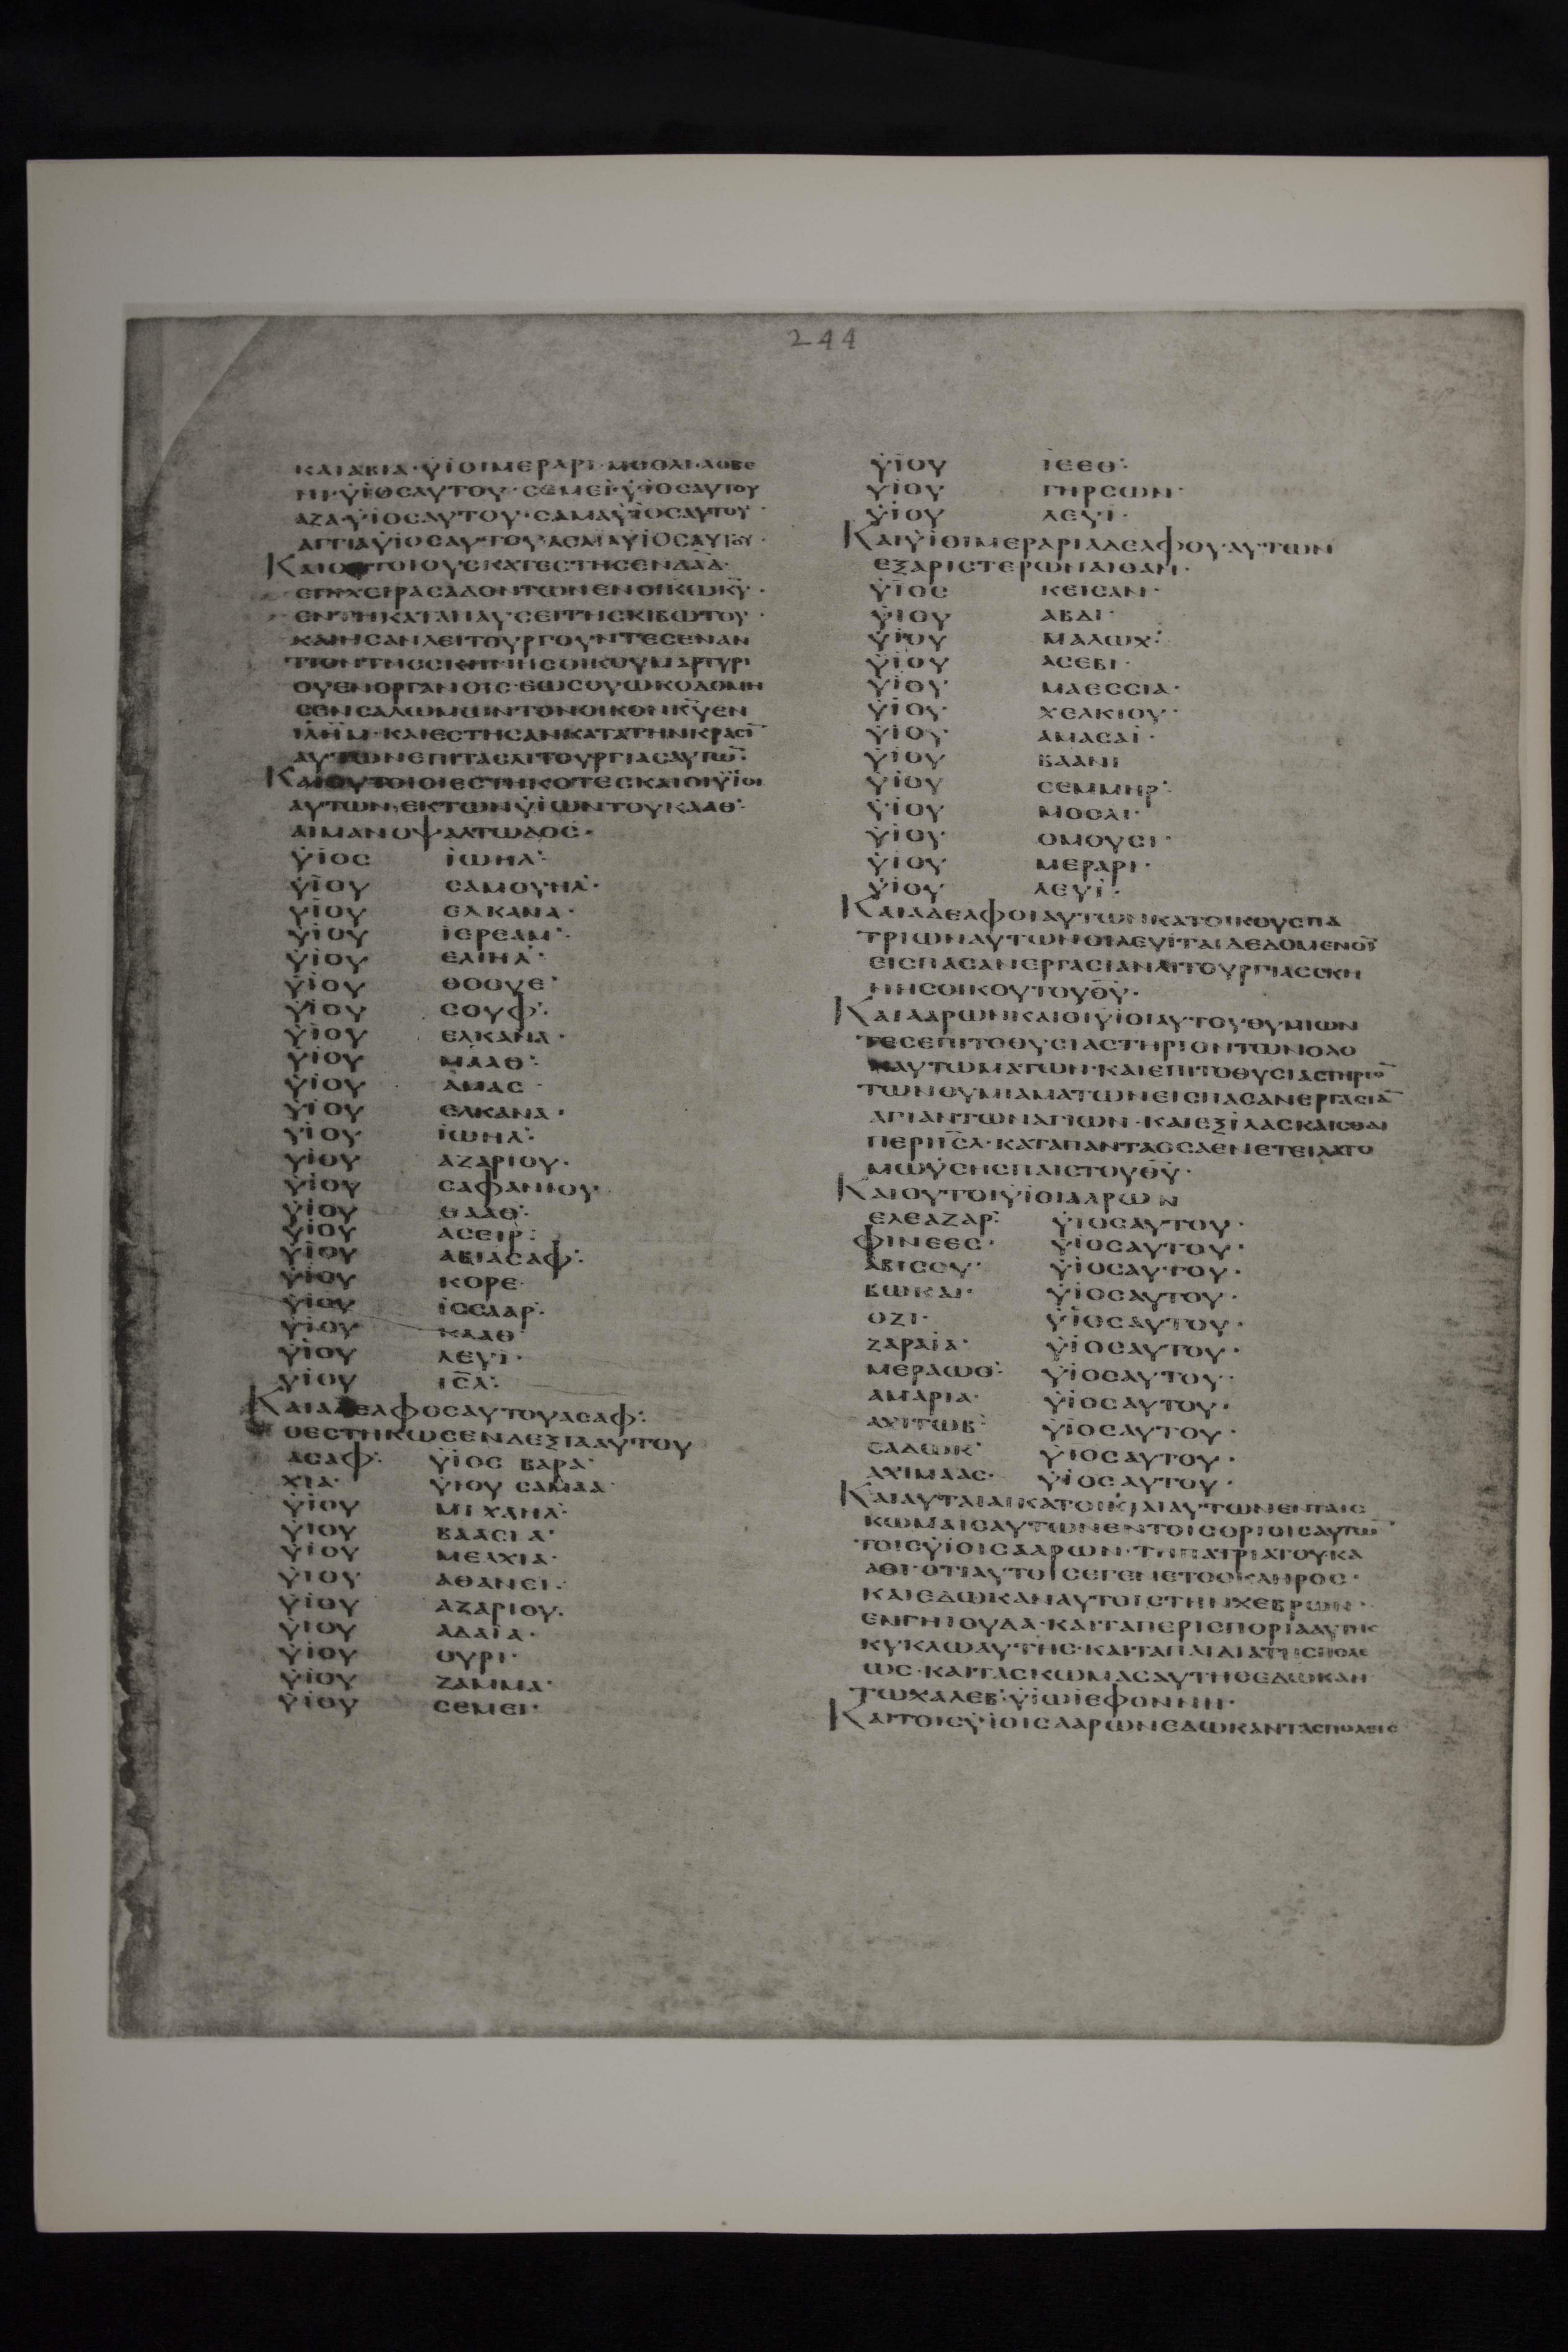 244
ΚΑΙΑΒΙΑ·ΥΪΟΙΜΕΡΑΡΙ·ΜΟΟΛΙ·ΛΟΒΕ
ΝΙ·ΥΪΟϹΑΥΤΟΥ·ϹΕΜΕΪ·ΥΪΟϹΑΥΤΟΥ
ΑΖΑ·ΥΪΟϹΑΥΤΟΥ·ϹΑΜΑΥΪΟϹΑΥΤΟΥ·
ΑΓΓΙΑΥΪΟϹΑΥΤΟΥ·ΑϹΑΪΑΥΪΟϹΑΥΤΟΥ·
ΚΑΙΟΥΤΟΙΟΥϹΚΑΤΕϹΤΗϹΕΝΔΑ̅Δ̅·
ΕΠΙΧΕΙΡΑϹΑΔΟΝΤΩΝΕΝΟΙΚΩΚ̅Υ̅·
ΕΝΤΗΚΑΤΑΠΑΥϹΕΙΤΗϹΚΙΒΩΤΟΥ·
ΚΑΙΗϹΑΝΛΕΙΤΟΥΡΓΟΥΝΤΕϹΕΝΑΝ
ΤΙΟΝΤΗϹϹΚΗΝΗϹΟΙΚΟΥΜΑΡΤΥΡΙ
ΟΥΕΝΟΡΓΑΝΟΙϹ·ΕΩϹΟΥΩΚΟΔΟΜΗ
ϹΕΝϹΑΛΩΜΩΝΤΟΝΟΙΚΟΝΚ̅Υ̅ΕΝ
ΙΛ̅Η̅Μ·ΚΑΙΕϹΤΗϹΑΝΚΑΤΑΤΗΝΚΡΑϹΙ̅
ΑΥΤΩΝΕΠΙΤΑϹΛΙΤΟΥΡΓΙΑϹΑΥΤΩ̅:
ΚΑΙΟΥΤΟΙΟΙΕϹΤΗΚΟΤΕϹΚΑΙΟΙΥΪΟΙ
ΑΥΤΩΝ,ΕΚΤΩΝΥΪΩΝΤΟΥΚΑΑΘ:
ΑΙΜΑΝΟΨΑΛΤΩΔΟϹ·
ΥΪΟϹ ΪΩΗΛ:
ΥΪΟΥ ϹΑΜΟΥΗΛ:
ΥΪΟΥ ΕΛΚΑΝΑ·
ΥΪΟΥ ΪΕΡΕΑΜ:
ΥΪΟΥ ΕΛΙΗΛ:
ΥΪΟΥ ΘΟΟΥΕ·
ΥΪΟΥ ϹΟΥΦ:
ΥΪΟΥ ΕΛΚΑΝΑ·
ΥΪΟΥ ΜΑΑΘ:
ΥΪΟΥ ΑΜΑϹ·
ΥΪΟΥ ΕΛΚΑΝΑ·
ΥΪΟΥ ΪΩΗΛ:
ΥΪΟΥ ΑΖΑΡΙΟΥ·
ΥΪΟΥ ϹΑΦΑΝΙΟΥ·
ΥΪΟΥ ΘΑΑΘ:
ΥΪΟΥ ΑϹΕΙΡ:
ΥΪΟΥ ΑΒΙΑϹΑΦ:
ΥΪΟΥ ΚΟΡΕ·
ΥΪΟΥ ΪϹϹΑΑΡ:
ΥΪΟΥ ΚΑΑΘ:
ΥΪΟΥ ΛΕΥΪ·
ΥΪΟΥ Ι̅Ϲ̅Λ:
ΚΑΙΑΔΕΛΦΟϹΑΥΤΟΥΑϹΑΦ:
ΟΕϹΤΗΚΩϹΕΝΔΕΞΙΑΑΥΤΟΥ
ΑϹΑΦ: ΥΪΟϹ ΒΑΡΑ
ΧΙΑ· ΥΪΟΥ ϹΑΜΑΑ·
ΥΪΟΥ ΜΙΧΑΗΛ:
ΥΪΟΥ ΒΑΑϹΙΑ·
ΥΪΟΥ ΜΕΛΧΙΑ·
ΥΪΟΥ ΑΘΑΝΕΙ·
ΥΪΟΥ ΑΖΑΡΙΟΥ·
ΥΪΟΥ ΑΔΑΪΑ·
ΥΪΟΥ ΟΥΡΙ·
ΥΪΟΥ ΖΑΜΜΑ·
ΥΪΟΥ ϹΕΜΕΙ·
ΥΪΟΥ ΪΕΕΘ:
ΥΪΟΥ ΓΗΡϹΩΝ·
ΥΪΟΥ ΛΕΥΪ·
ΚΑΙΥΪΟΙΜΕΡΑΡΙΑΔΕΛΦΟΥΑΥΤΩΝ
ΕΞΑΡΙϹΤΕΡΩΝΑΙΘΑΝ·
ΥΪΟϹ ΚΕΙϹΑΝ·
ΥΪΟΥ ΑΒΔΙ·
ΥΪΟΥ ΜΑΛΩΧ:
ΥΪΟΥ ΑϹΕΒΙ·
ΥΪΟΥ ΜΑΕϹϹΙΑ·
ΥΪΟΥ ΧΕΛΚΙΟΥ·
ΥΪΟΥ ΑΜΑϹΑΪ·
ΥΪΟΥ ΒΑΑΝΙ
ΥΪΟΥ ϹΕΜΜΗΡ:
ΥΪΟΥ ΜΟΟΛΙ·
ΥΪΟΥ ΟΜΟΥϹΙ·
ΥΪΟΥ ΜΕΡΑΡΙ·
ΥΪΟΥ ΛΕΥΪ:
ΚΑΙΑΔΕΛΦΟΙΑΥΤΩΝΚΑΤΟΙΚΟΥϹΠΑ
ΤΡΙΩΝΑΥΤΩΝΟΙΛΕΥΪΤΑΙΔΕΔΟΜΕΝΟΙ
ΕΙϹΠΑϹΑΝΕΡΓΑϹΙΑΝΛΙΤΟΥΡΓΙΑϹϹΚΗ
ΝΗϹΟΙΚΟΥΤΟΥΘ̅Υ̅·
ΚΑΙΑΑΡΩΝΚΑΙΟΙΥΪΟΙΑΥΤΟΥΘΥΜΙΩΝ
ΤΕϹΕΠΙΤΟΘΥϹΙΑϹΤΗΡΙΟΝΤΩΝΟΛΟ
ΚΑΥΤΩΜΑΤΩΝ·ΚΑΙΕΠΙΤΟΘΥϹΙΑϹΤΗΡΙΟ̅
ΤΩΝΘΥΜΙΑΜΑΤΩΝΕΙϹΠΑϹΑΝΕΡΓΑϹΙΑ̅
ΑΓΙΑΝΤΩΝΑΓΙΩΝ·ΚΑΙΕΞΪΛΑϹΚΑΙϹΘΑΙ
ΠΕΡΙΙ̅Ϲ̅Λ·ΚΑΤΑΠΑΝΤΑΟϹΑΕΝΕΤΕΙΛΑΤΟ
ΜΩΫϹΗϹΠΑΙϹΤΟΥΘ̅Υ̅·
ΚΑΙΟΥΤΟΙΥΪΟΙΑΑΡΩΝ
ΕΛΕΑΖΑΡ: ΥΪΟϹΑΥΤΟΥ·
ΦΙΝΕΕϹ· ΥΪΟϹΑΥΤΟΥ·
ΑΒΙϹΟΥ· ΥΪΟϹΑΥΤΟΥ·
ΒΩΚΑΙ· ΥΪΟϹΑΥΤΟΥ·
ΟΖΙ· ΥΪΟϹΑΥΤΟΥ·
ΖΑΡΑΪΑ· ΥΪΟϹΑΥΤΟΥ·
ΜΕΡΑΩΘ: ΥΪΟϹΑΥΤΟΥ·
ΑΜΑΡΙΑ· ΥΪΟϹΑΥΤΟΥ·
ΑΧΙΤΩΒ: ΥΪΟϹΑΥΤΟΥ·
ϹΑΔΩΚ: ΥΪΟϹΑΥΤΟΥ·
ΑΧΙΜΑΑϹ· ΥΪΟϹΑΥΤΟΥ·
ΚΑΙΑΥΤΑΙΑΙΚΑΤΟΙΚΙΑΙΑΥΤΩΝΕΝΤΑΙϹ
ΚΩΜΑΙϹΑΥΤΩΝΕΝΤΟΙϹΟΡΙΟΙϹΑΥΤΩ̅·
ΤΟΙϹΥΪΟΙϹΑΑΡΩΝ·ΤΗΠΑΤΡΙΑΤΟΥΚΑ
ΑΘΙ·ΟΤΙΑΥΤΟΙϹΕΓΕΝΕΤΟΟΚΛΗΡΟϹ·
ΚΑΙΕΔΩΚΑΝΑΥΤΟΙϹΤΗΝΧΕΒΡΩΝ·
ΕΝΓΗΙΟΥΔΑ·ΚΑΙΤΑΠΕΡΙϹΠΟΡΙΑΑΥΤΗϹ
ΚΥΚΛΩΑΥΤΗϹ·ΚΑΙΤΑΠΕΔΙΑΤΗϹΠΟΛΕ
ΩϹ·ΚΑΙΤΑϹΚΩΜΑϹΑΥΤΗϹΕΔΩΚΑΝ
ΤΩΧΑΛΕΒ:ΥΪΩΪΕΦΟΝΝΗ·
ΚΑΙΤΟΙϹΥΪΟΙϹΑΑΡΩΝΕΔΩΚΑΝΤΑϹΠΟΛΕΙϹ